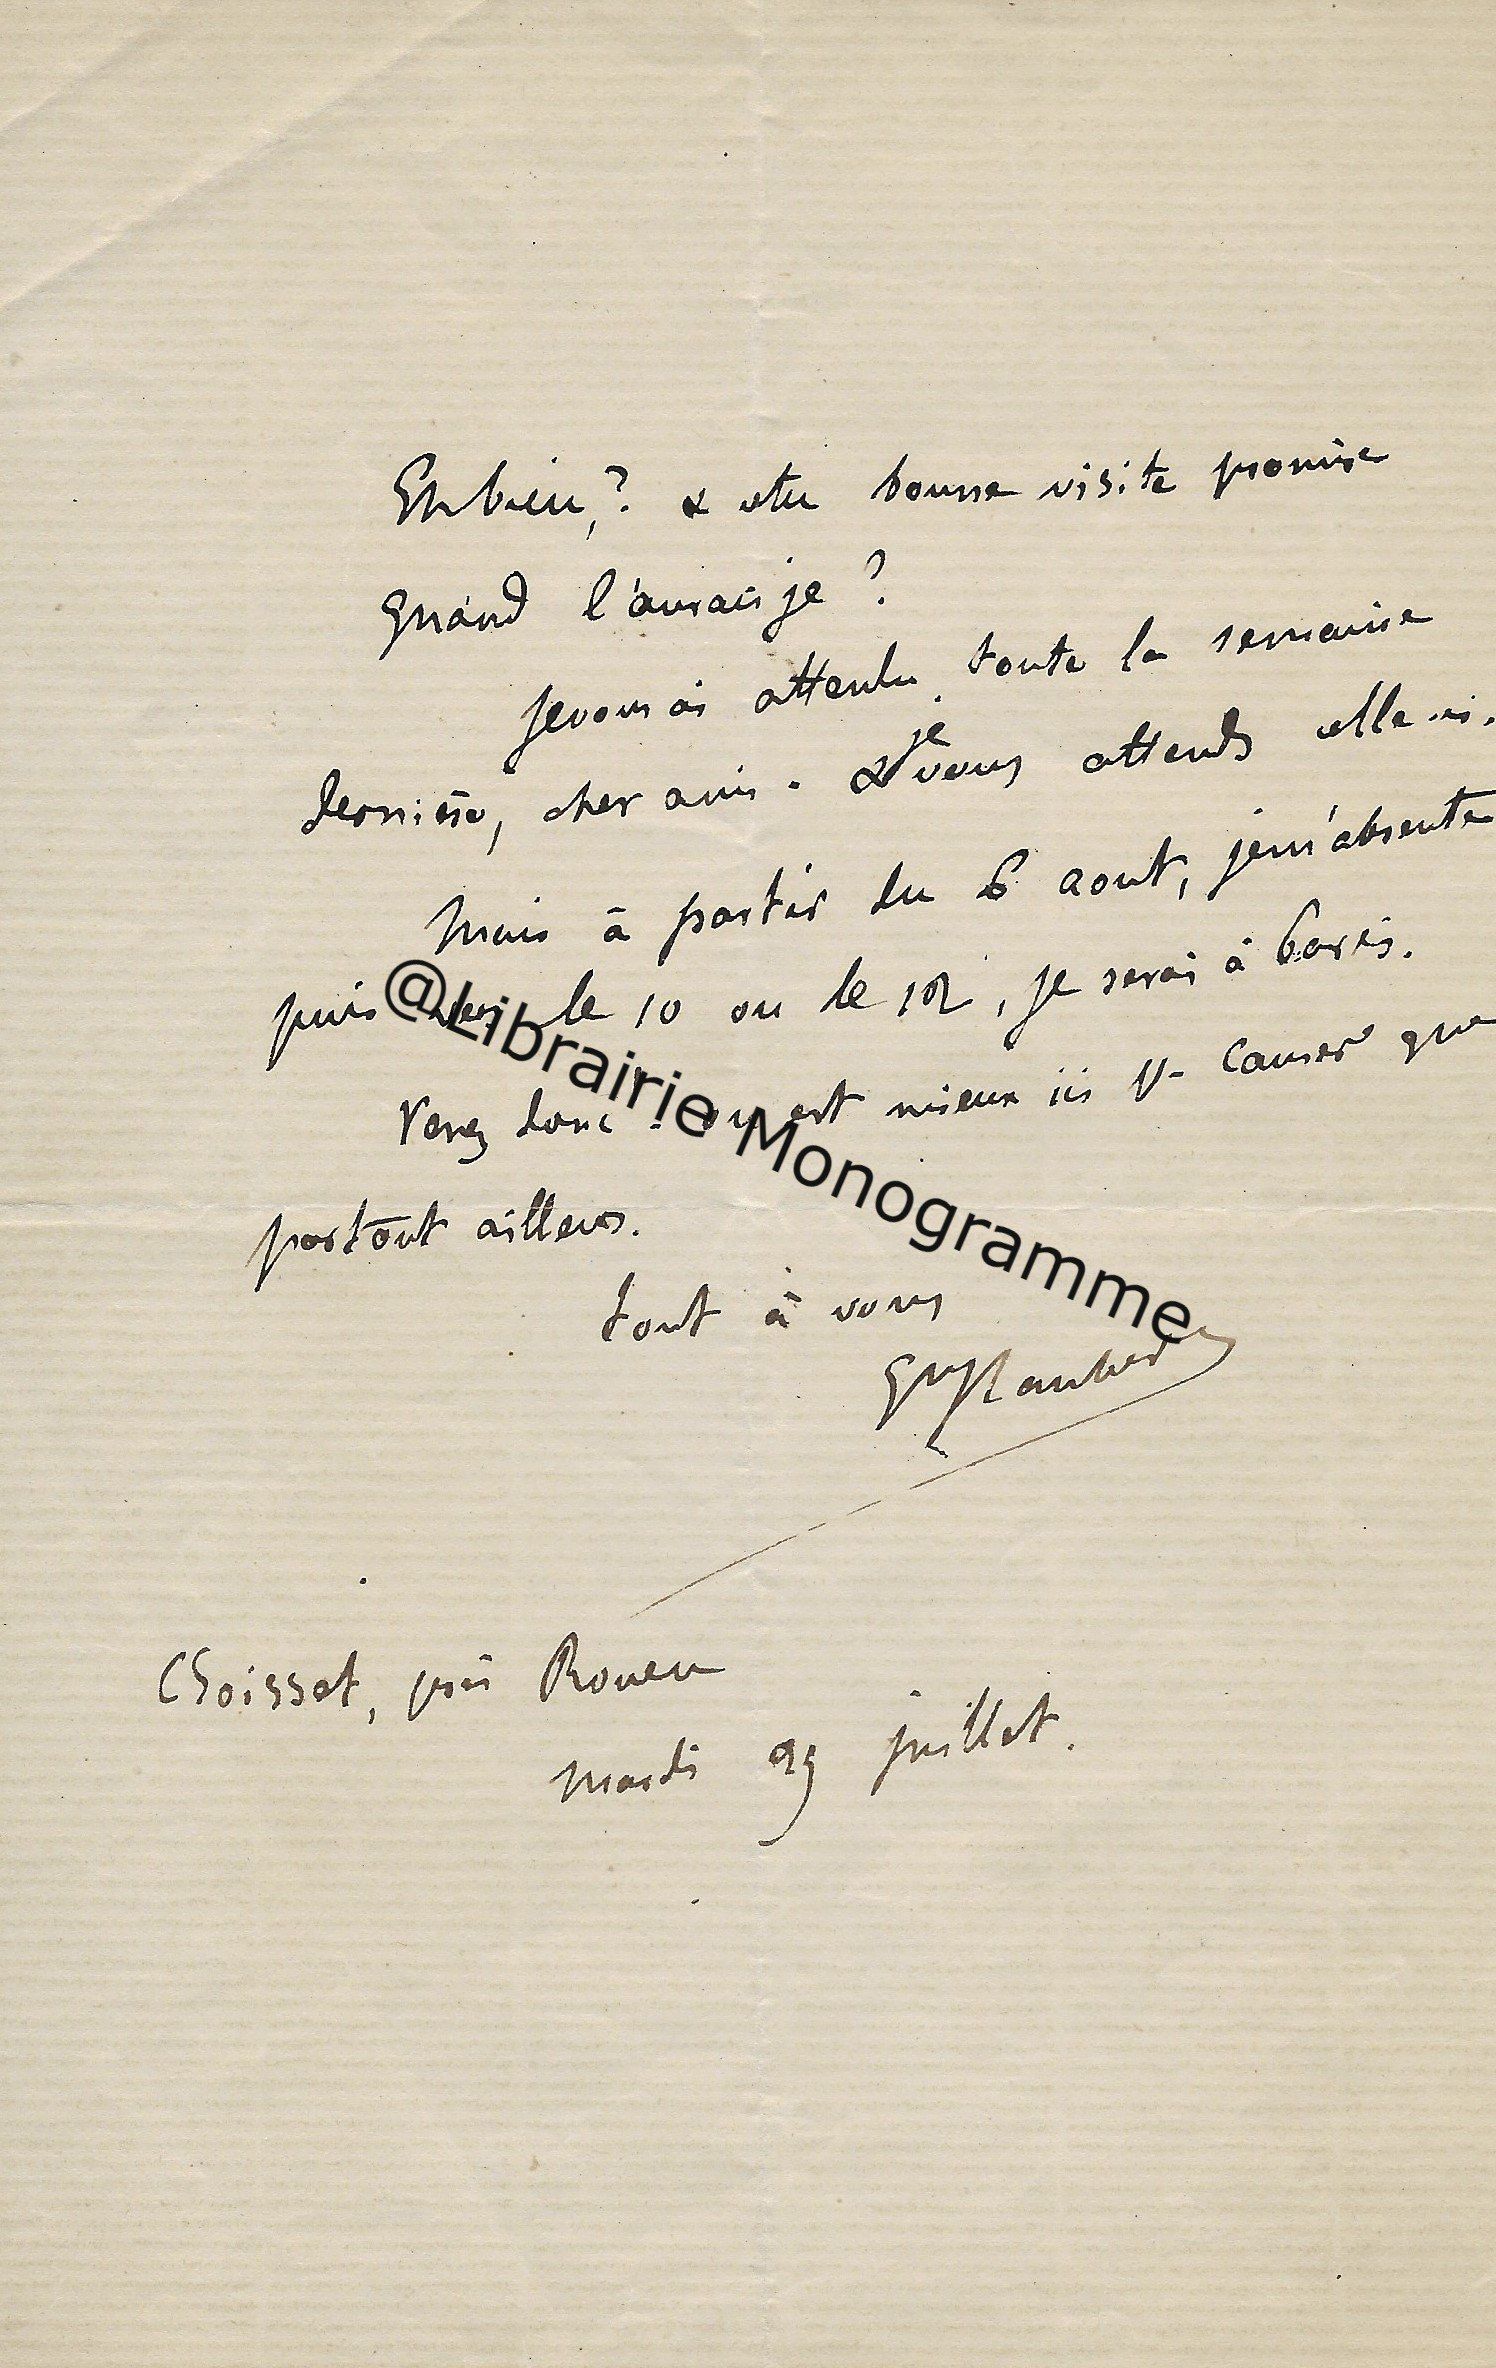 Eh bien,? & cette bonne visite promise
quand l'aurai je ?
je vous ai attendu toute la semaine
je
dernière, cher ami. & vous attends celle-ci.
Mais à partir du 6 aout, je m'absente
puis vers le 10 ou le 12, je serai à Paris.
Venez donc ! on est mieux ici pr causer que
partout ailleurs.
tout à vous
Gve Flaubert
Croisset, près Rouen
mardi 29 juillet.
@Librairie Monogramme